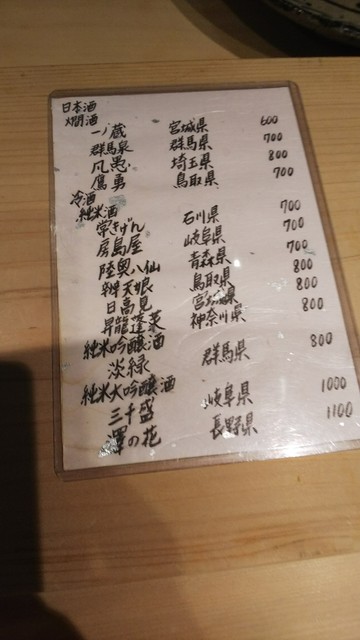 日本酒
燗酒
一ノ蔵 宮城県 600
群馬泉 群馬県 700
凡愚 埼玉県 800
鷹勇 鳥取県 700
冷酒
純米酒
常きげん 石川県 700
房島屋 岐阜県 700
陸奥八仙 青森県 700
辨天娘 鳥取県 800
日高見 宮城県 800
昇龍蓬莱 神奈川県 800
純米吟醸酒
淡緑 群馬県 800
純米大吟醸酒
三千盛 岐阜県 1000
澤の花 長野県 1100